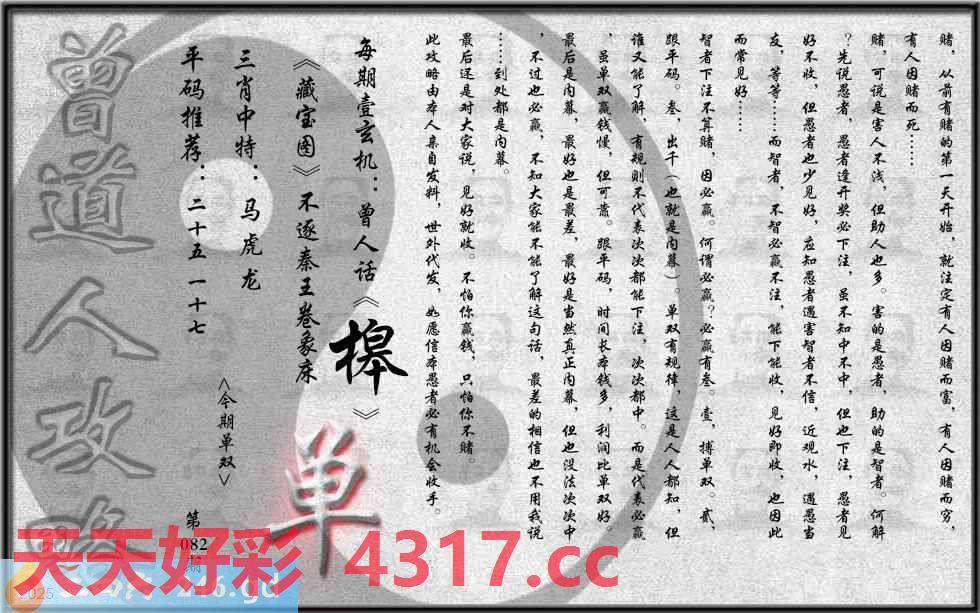 赌，从前有赌的第一天开始，就注定有人因赌而富，有人因赌而穷，
有人因赌而死……
赌，可说是害人不浅，但助人也多。害的是愚者，助的是智者。何解
？先说愚者，愚者逢开奖必下注，虽不知中不中，但也下注，愚者见
好不收，但愚者也少见好，应知愚者遇害智者不信，近观水，遇愚当
友，等等……而智者，不智必赢不注，能下能收，见好即收，也因此
而常见好……
智者下注不算赌，因必赢。何谓必赢？必赢有叁。壹，搏单双。贰，
跟平码。叁，出千（也就是内幕）。单双有规律，这是人人都知，但
谁又能了解，有规则不代表次次都能下注，次次都中。而是代表必赢
，虽单双赢钱慢，但可靠。跟平码，时间长本钱多，利润比单双好。
最后是内幕，最好也是最差，最好是当然真正内幕，但也没法次次中
，不过也必赢，不知大家能不能了解这句话，最差的相信也不用我说
……到处都是内幕。
最后还是对大家说，见好就收。不怕你赢钱，只怕你不赌。
此攻略由本人亲自发料，世外代发，如愿信本愚者必有机会收手。
每期壹玄机：曾人话《槔》
《藏宝图》不逐秦王卷象床
三肖中特：马虎龙
平码推荐：二十五一十七
<今期单双>
单
第
082
期
曾道人攻略
天天好彩 4317.cc
2025
246.gd